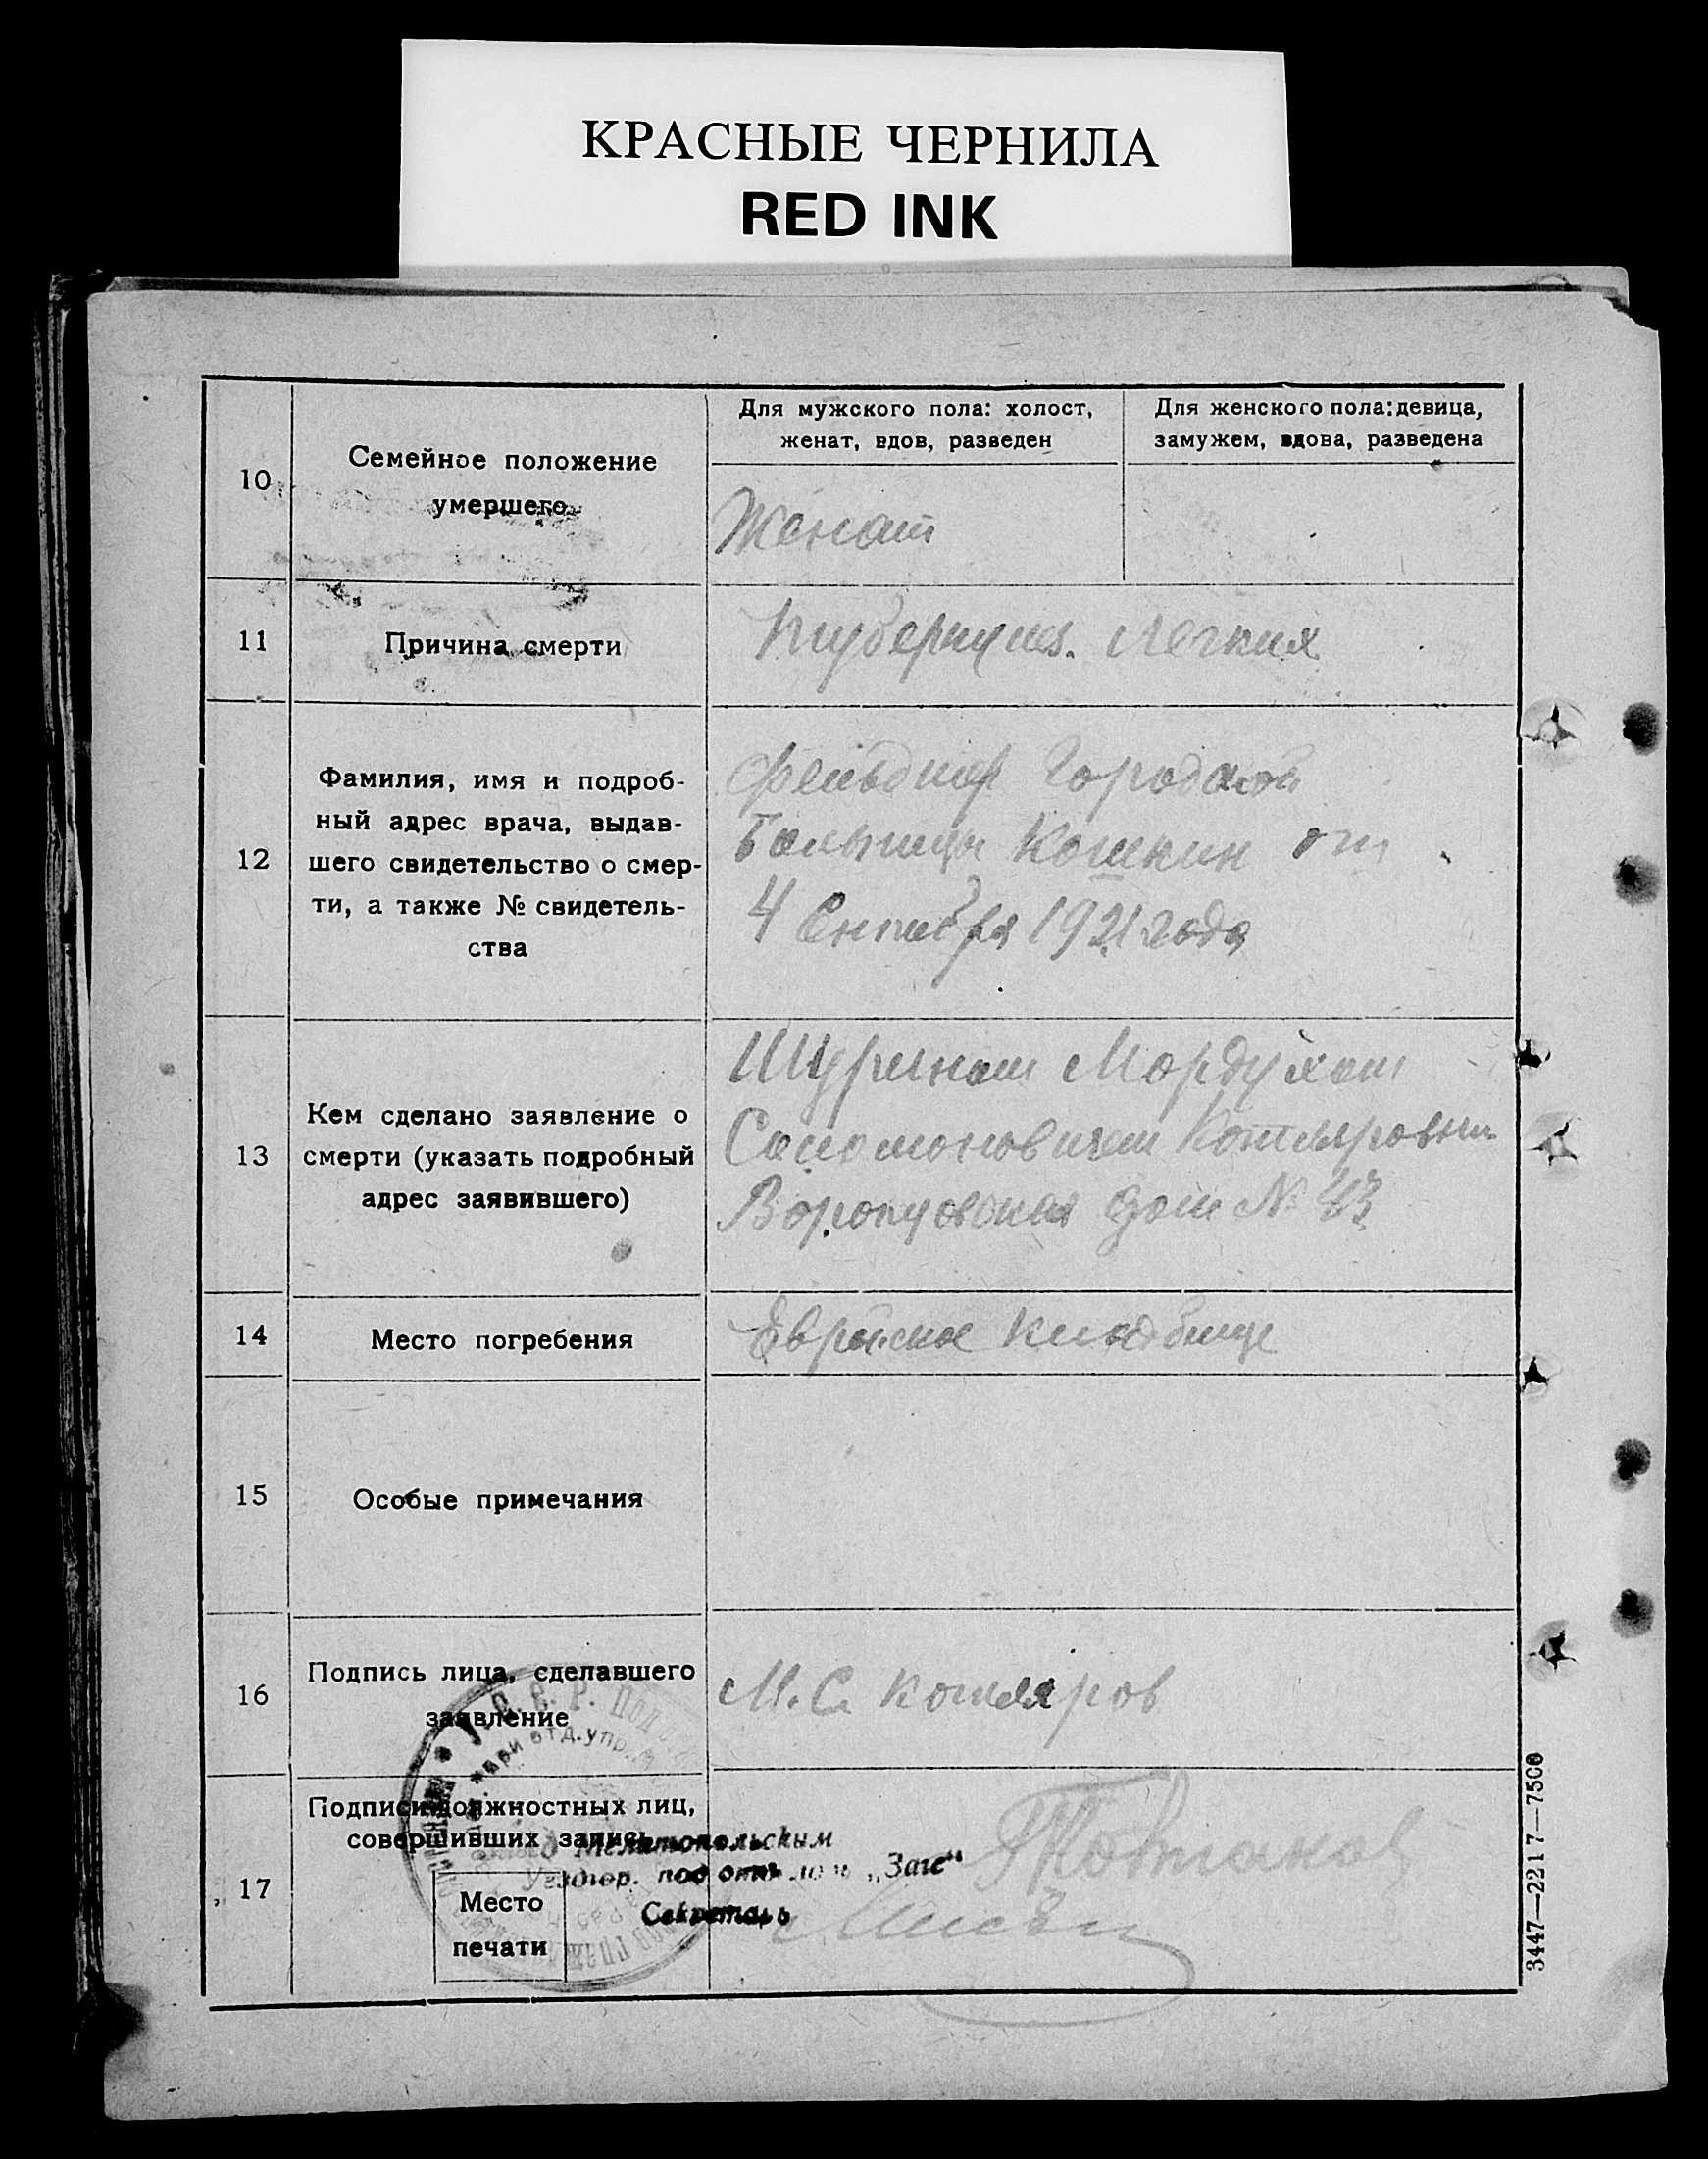 КРАСНЫЕ ЧЕРНИЛА
RED INK
10
Семейное положение
умершего
Для мужского пола: холост,
женат, вдов, разведен
Для женского пола: девица,
замужем, вдова, разведена
Женат
11
Причина смерти
Туберкулез. Легких
12
Фамилия, имя и подроб-
ный адрес врача, выдав-
шего свидетельство о смер-
ти, а также № свидетель-
ства
Фельдшер Городской
Больницы Кошкин от
4 Сентября 1921 года
13
Кем сделано заявление о
смерти (указать подробный
адрес заявившего)
Шурином Мордухом
Соломоновичем Котляровым
дом № 43
14
Место погребения
Еврейское кладбище
15
Особые примечания
16
Подпись лица, сделавшего
заявление
М. С. Котляров
17
Подписи должностных лиц,
совершивших запись
Место
печати
Мелитопольским
под „Загс“
Секретарь
3447—2217—7500